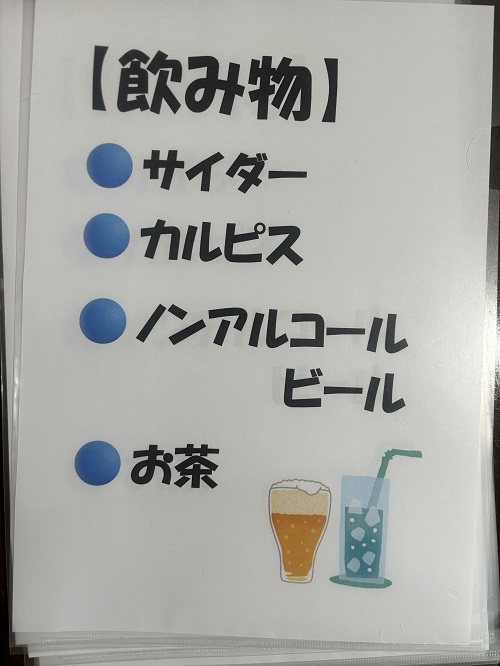 【飲み物】
サイダー
カルピス
ノンアルコール
ビール
お茶